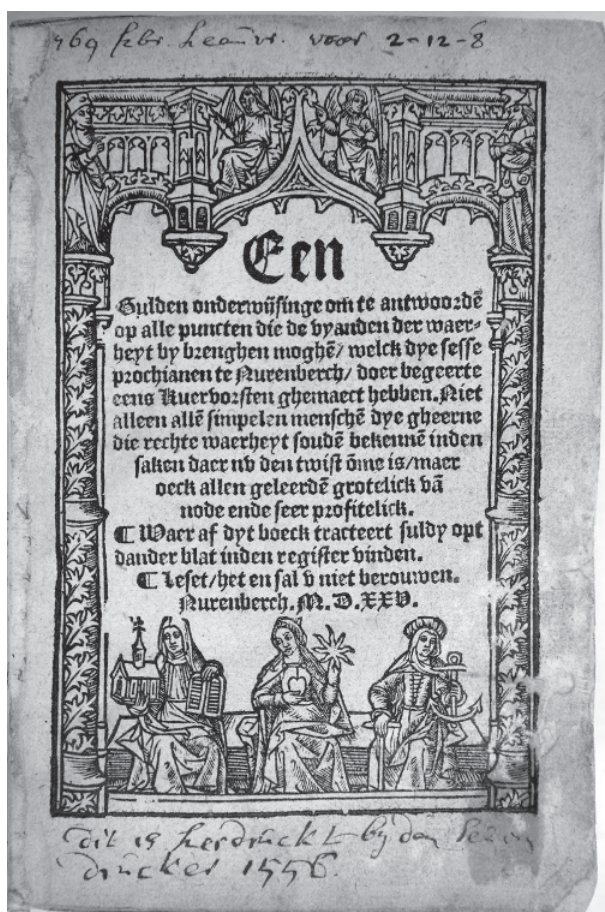 769 febr. Leauw. voor 2-12-8
Een
Gulden onderwijsinge om te antwoordē
op alle puncten die de vyanden der waer-
heyt by brenghen moghē/ welck dye sesse
prochianen te Nurenberch/ doer begeerte
eens Kuervorsten ghemaect hebben. Niet
alleen allē simpelen menschē dye gheerne
die rechte waerheyt soudē bekennē inden
saken daer nv den twist ōme is/maer
oeck allen geleerdē grotelick vā
node ende seer profitelick.
¶ Waer af dyt boeck tracteert suldy opt
dander blat inden register vinden.
¶ Leset/het en sal v niet berouwen.
Nurenberch. M.D.XXV.
dit is herdruckt by den
drucker 1556.